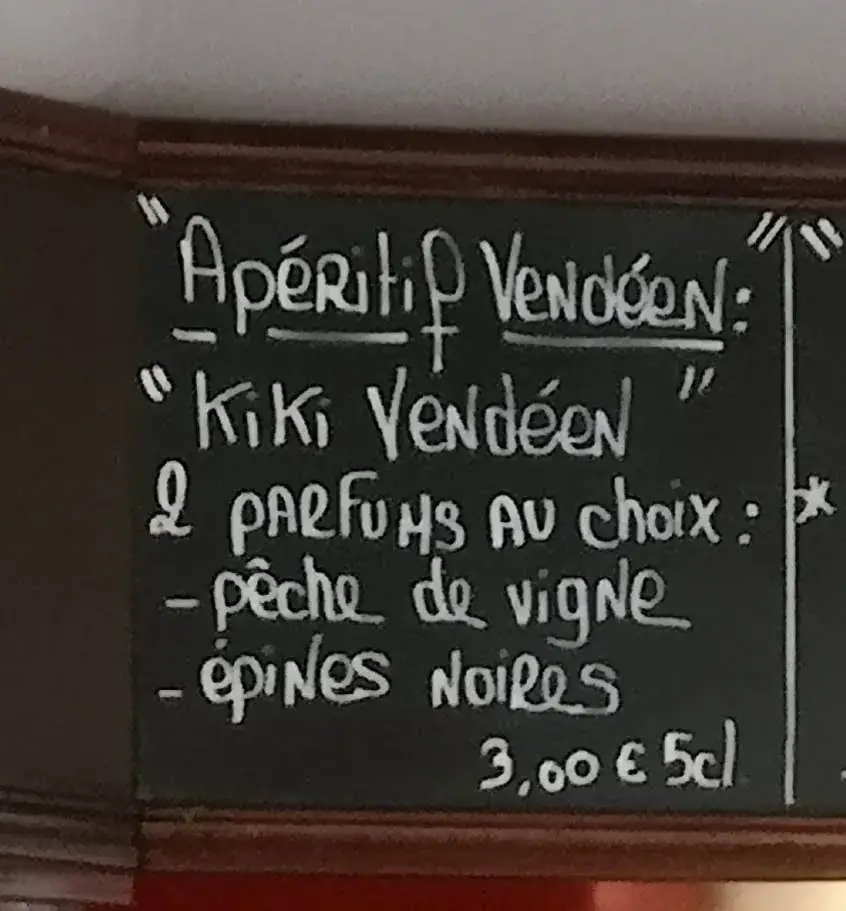 "Apéritif Vendéen: "
"Kiki Vendéen"
2 parfums au choix :
- pêche de vigne
- épines noires
3,00 € 5cl
"
*